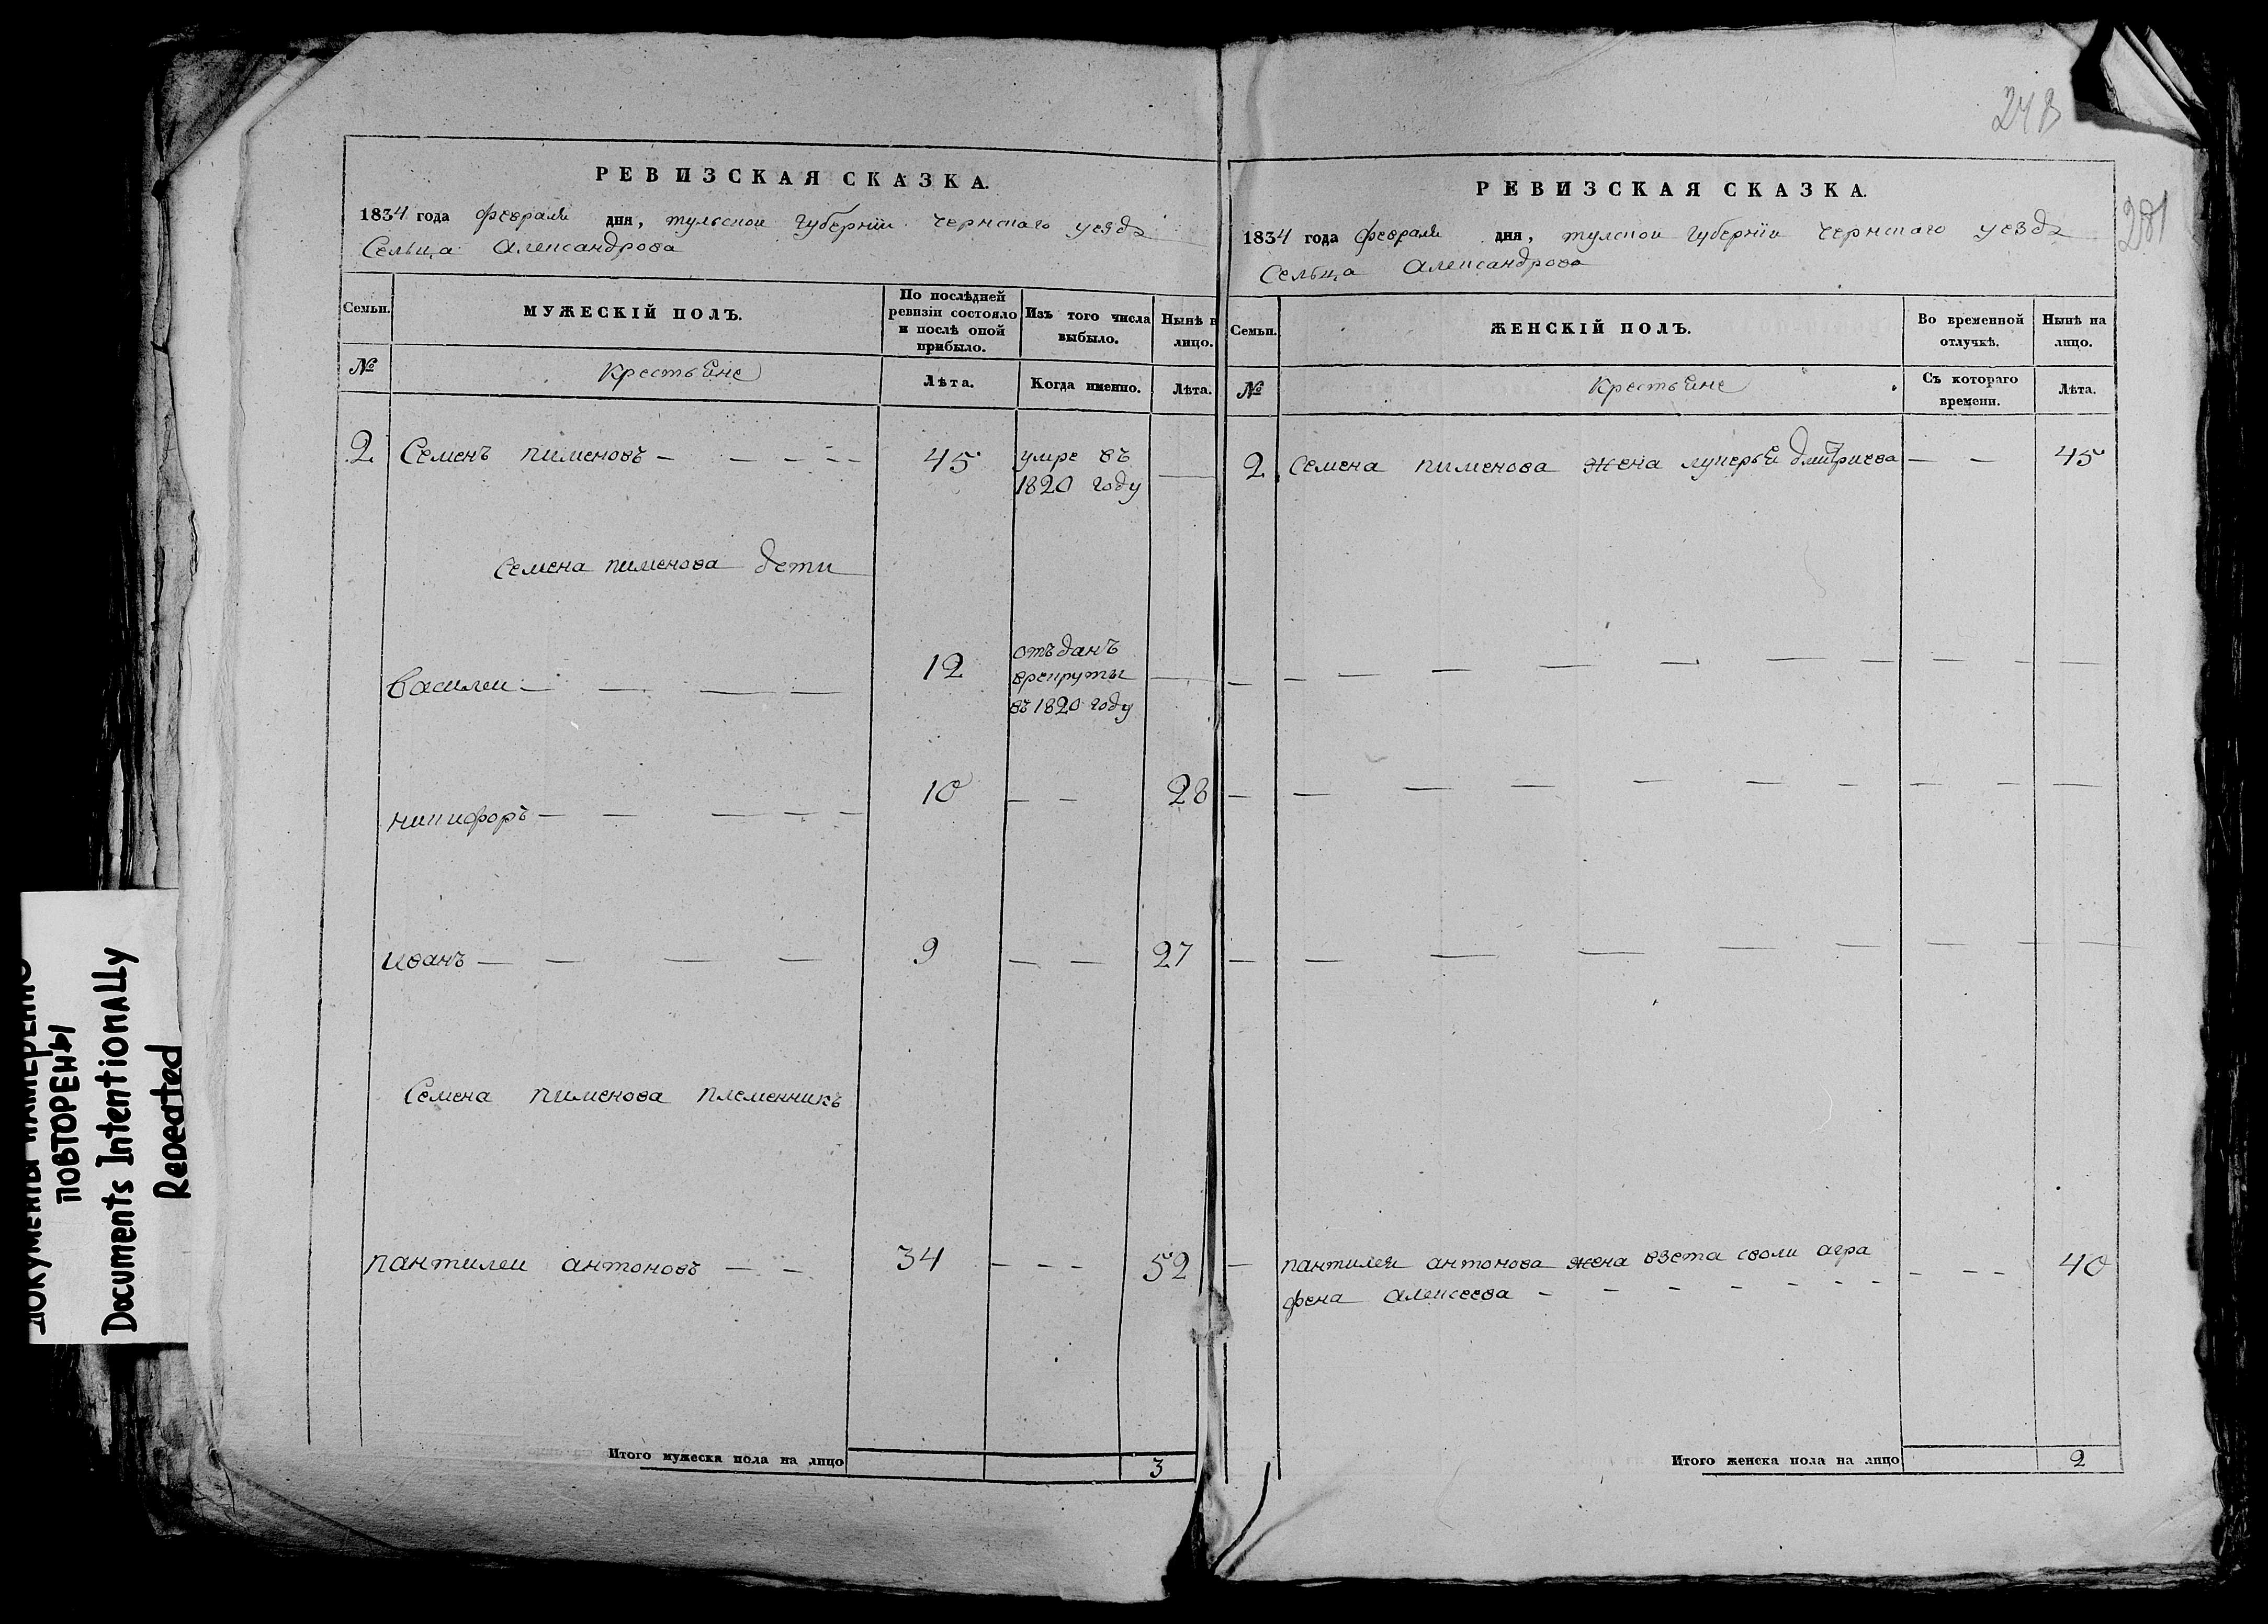 248
281
РЕВИЗСКАЯ СКАЗКА.
1834 года февраля дня, тульскои губернiи чернскаго уезда
Сельца Александрова
Семьи.
МУЖЕСКІЙ ПОЛЪ.
По послѣдней ревизіи состояло и послѣ оной прибыло.
Изъ того числа выбыло.
Нынѣ н лицо.
№
Крестьяне
Лѣта.
Когда именно.
Лѣта.
2 Семенъ пименовъ 45 умре въ
1820 году
Семена пименова дети
василеи 12 отъданъ
врекруты
въ 1820 году
никифоръ 10 28
иванъ 9 27
Семена пименова племенникъ
пантилеи антоновъ 34 52
Итого мужеска пола на лицо 3
РЕВИЗСКАЯ СКАЗКА.
1834 года февраля дня, тулскои губернiи чернскаго уезда
Сельца Александрова
Семьи.
ЖЕНСКІЙ ПОЛЪ.
Во временной отлучкѣ.
Нынѣ на лицо.
№
Крестьяне
Съ котораго времени.
Лѣта.
2 Семена пименова жена лукерья дмитриева 45
пантилея антонова жена взета своли агра
фена алексеева 40
Итого женска пола на лицо 2
ПОВТОРЕНЫ
Documents Intentionally
Repeated